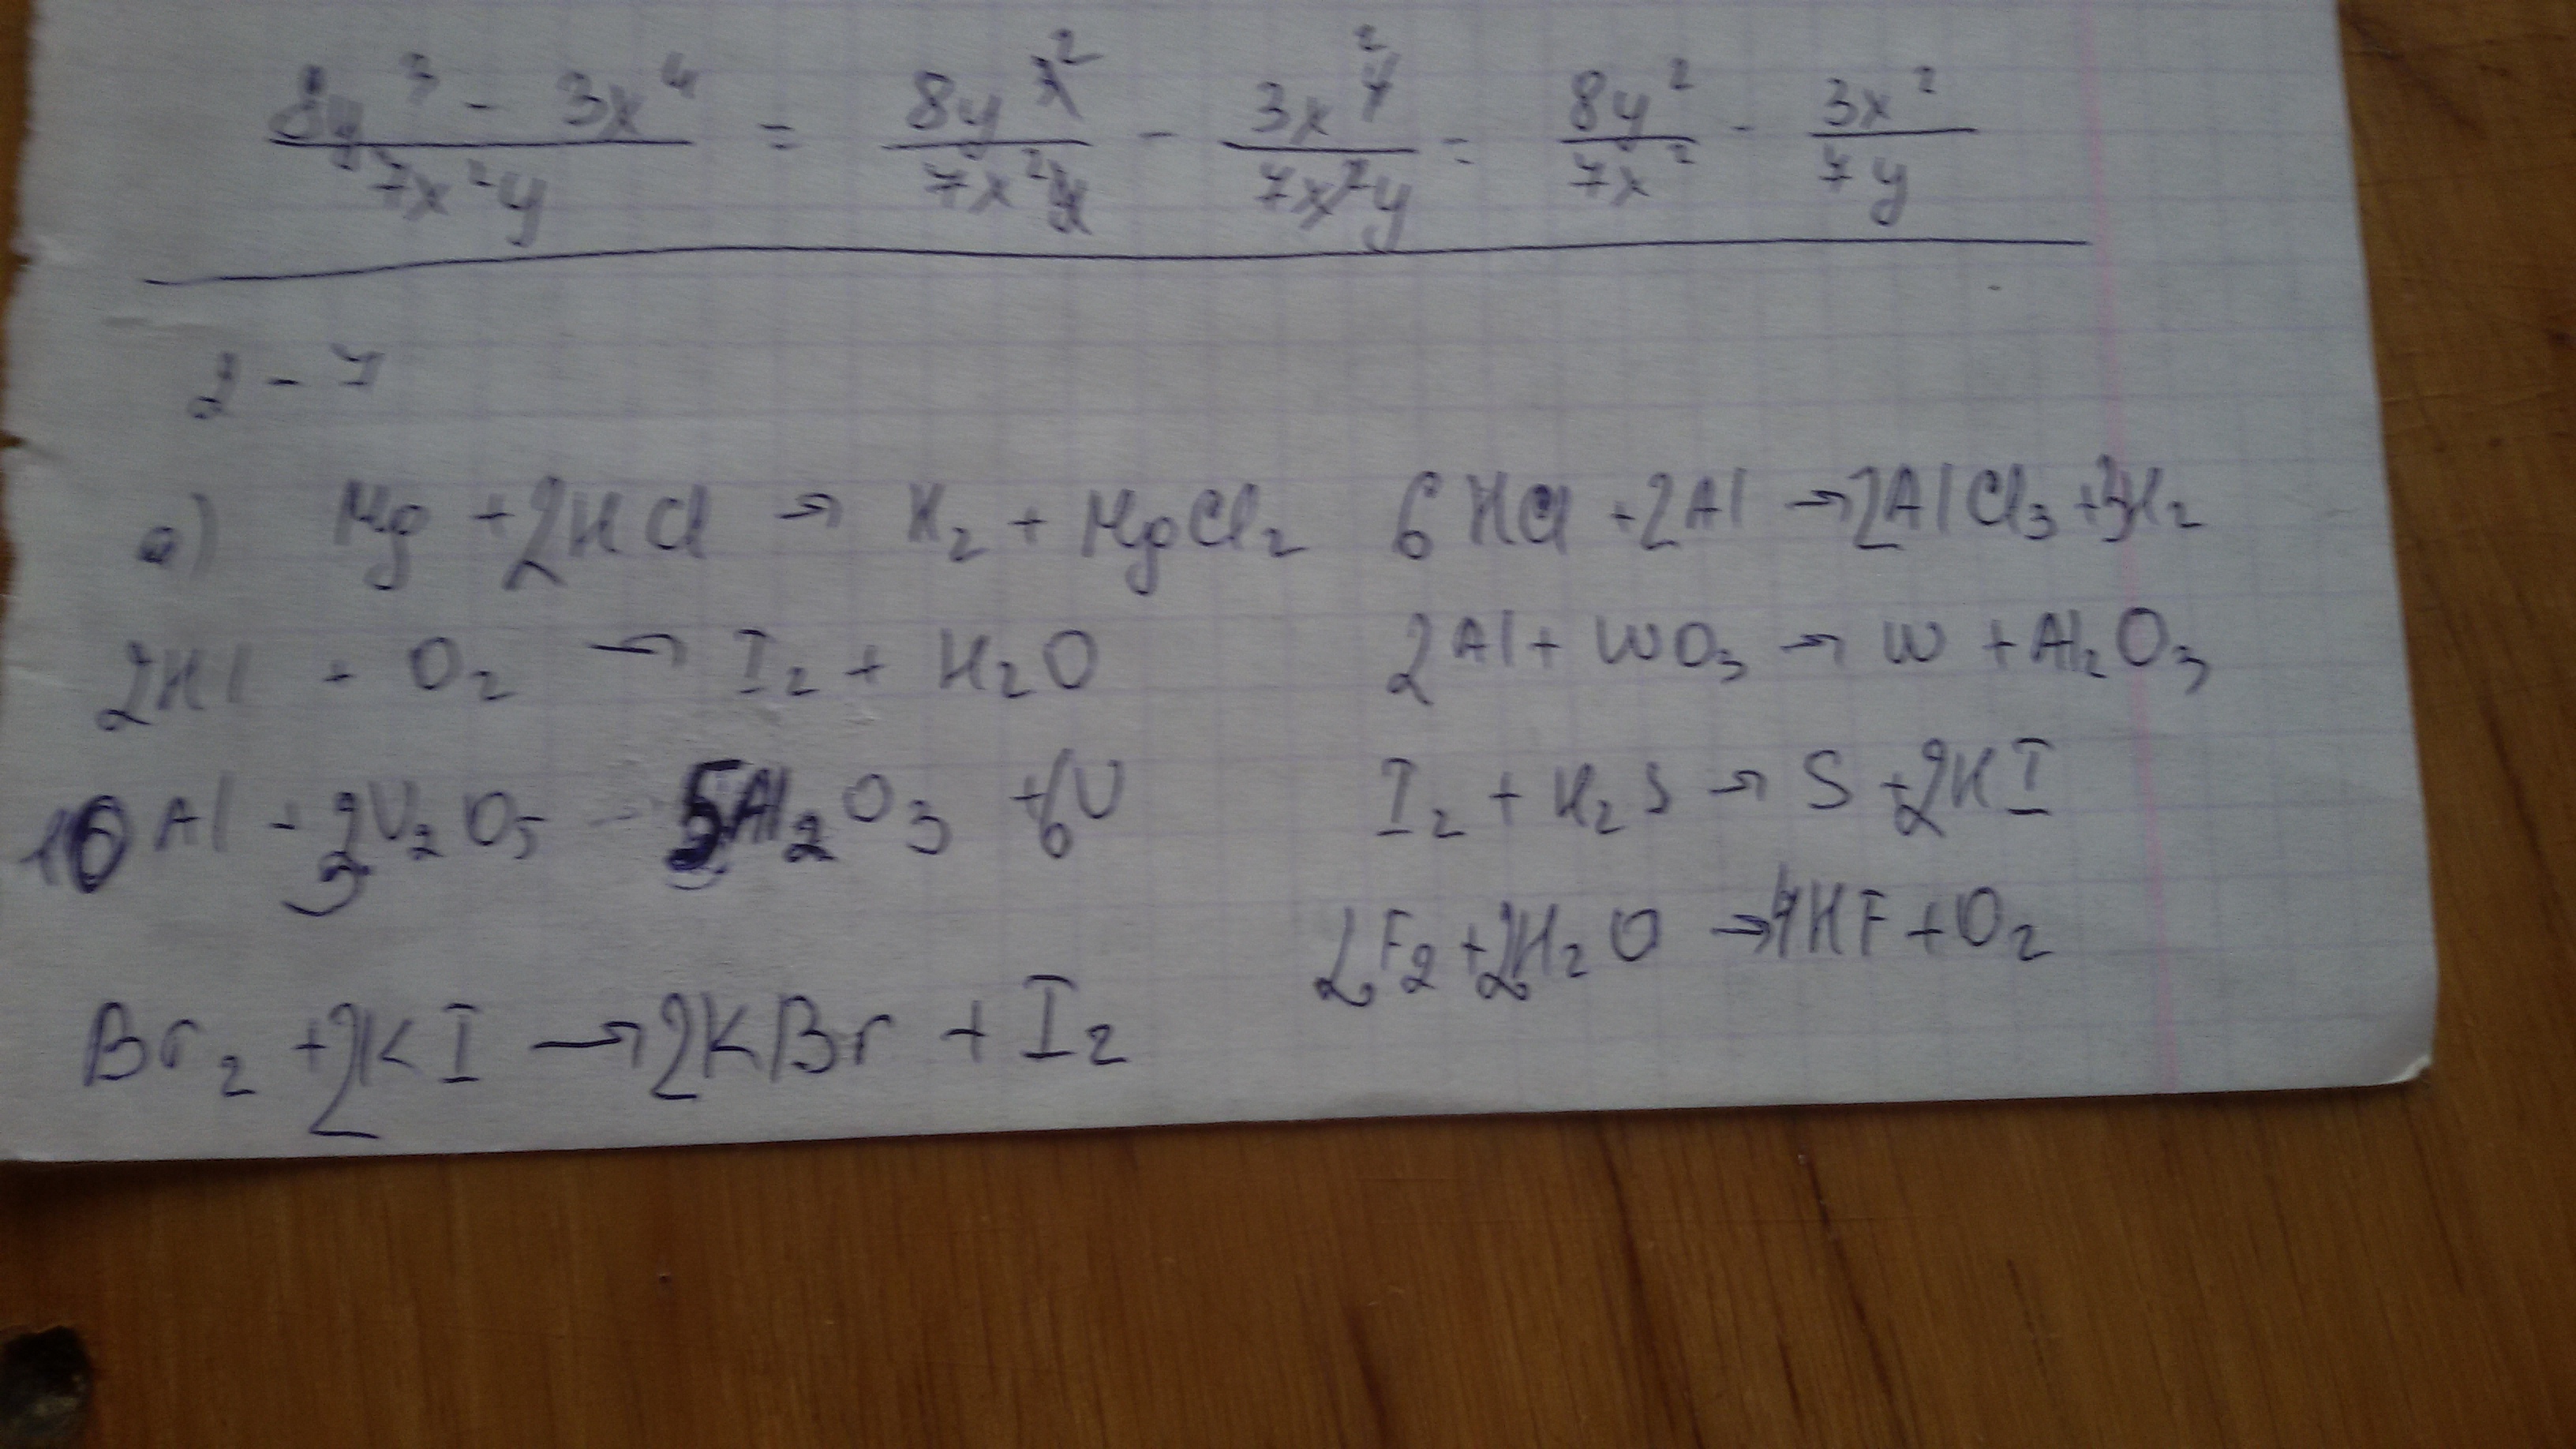 8y³ - 3x⁴ / 7x²y = 8y³² / 7x²y - 3x⁴² / 7x²y = 8y² / 7x² - 3x² / 7y
2-7
а) Mg + 2HCl → H₂ + MgCl₂ 6HCl + 2Al → 2AlCl₃ + 3H₂
2HI + O₂ → I₂ + H₂O 2Al + WO₃ → W + Al₂O₃
10Al + 3V₂O₅ - 5Al₂O₃ + 6V I₂ + H₂S → S + 2HI
2F₂ + 2H₂O → 4HF + O₂
Br₂ + 2KI → 2KBr + I₂